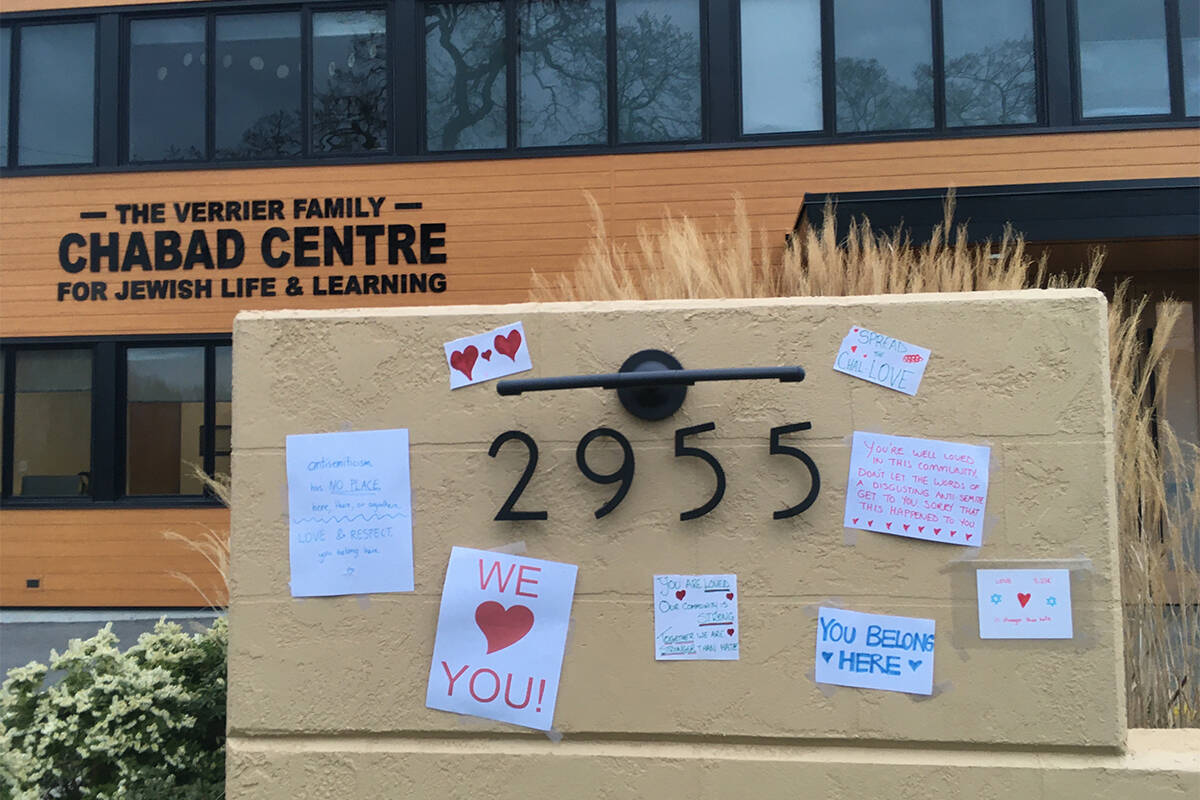 — THE VERRIER FAMILY —
CHABAD CENTRE
FOR JEWISH LIFE & LEARNING
SPREAD
THE
CHAL·LOVE
2955
antisemiticism
has NO PLACE
here, there, or anywhere.
LOVE & RESPECT.
you belong here.
YOU'RE WELL LOVED
IN THIS COMMUNITY.
DON'T LET THE WORDS OF
A DISGUSTING ANTI-SEMITE
GET TO YOU. SORRY THAT
THIS HAPPENED TO YOU
WE
YOU!
YOU ARE LOVED
OUR COMMUNITY IS
STRONG
TOGETHER WE ARE
STRONGER THAN HATE
YOU BELONG
HERE
LOVE
is stronger than hate